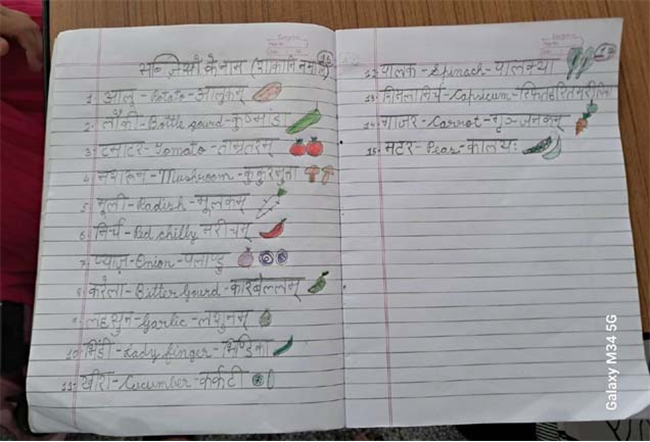 सब्ज़ियों के नाम
1. आलू - Potato - आलूकम्
2. लौकी - Bottle gourd - कुष्मांडा
3. टमाटर - Tomato - ताम्रतरम्
4. मशरूम - Mushroom - कुकुरमुत्ता
5. मूली - Radish - मूलकम्
6. मिर्च - Red chilly मरीचम्
7. प्याज़ - Onion - पलाण्डु
8. करेला - Bitter Gourd - कारबेल्लम्
9. लहसुन - Garlic - लशुनम्
10. भिंडी - Lady finger - भिण्डिका
11. खीरा - Cucumber - कर्कटी
12. पालक - Spinach - पालक्या
13. शिमलामिर्च - Capsicum
14. गाजर - Carrot - गृञ्जनकम्
15. मटर - Pear - कालयः
Galaxy M34 5G